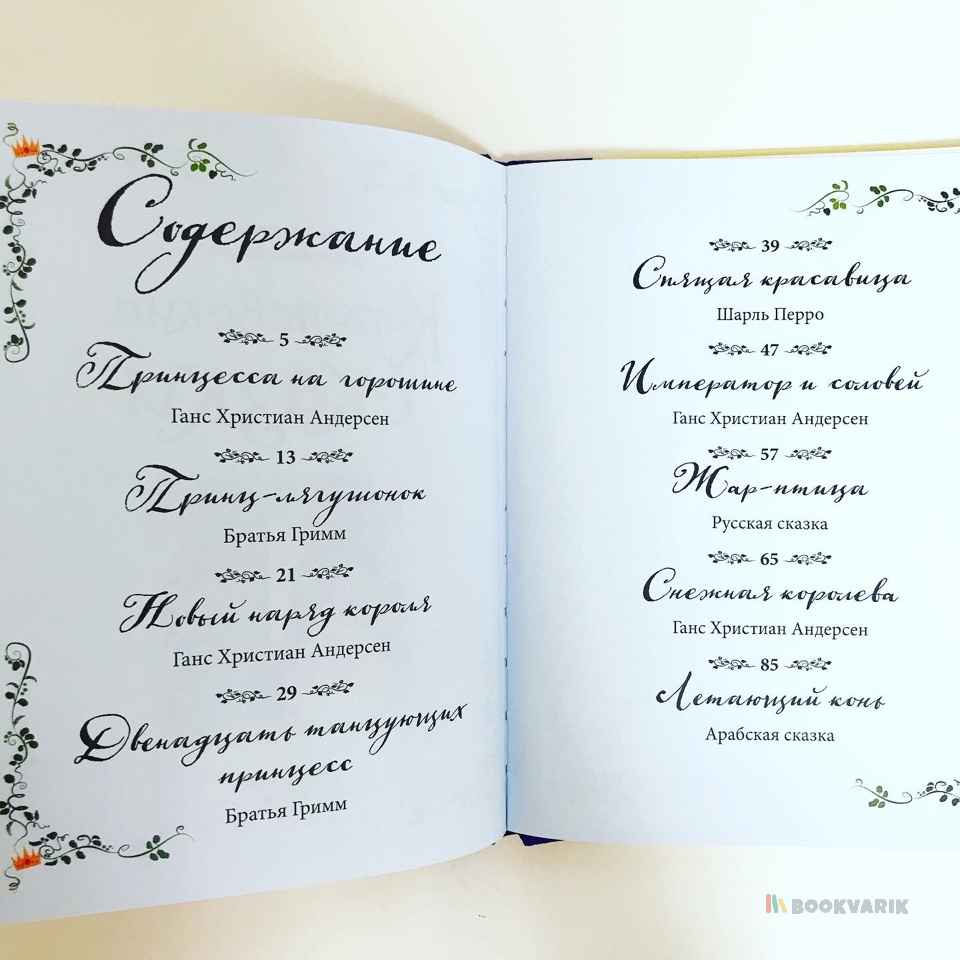 Содержание
5
Принцесса на горошине
Ганс Христиан Андерсен
13
Принц-лягушонок
Братья Гримм
21
Новый наряд короля
Ганс Христиан Андерсен
29
Двенадцать танцующих
принцесс
Братья Гримм
39
Спящая красавица
Шарль Перро
47
Император и соловей
Ганс Христиан Андерсен
57
Жар-птица
Русская сказка
65
Снежная королева
Ганс Христиан Андерсен
85
Летающий конь
Арабская сказка
BOOKVARIK